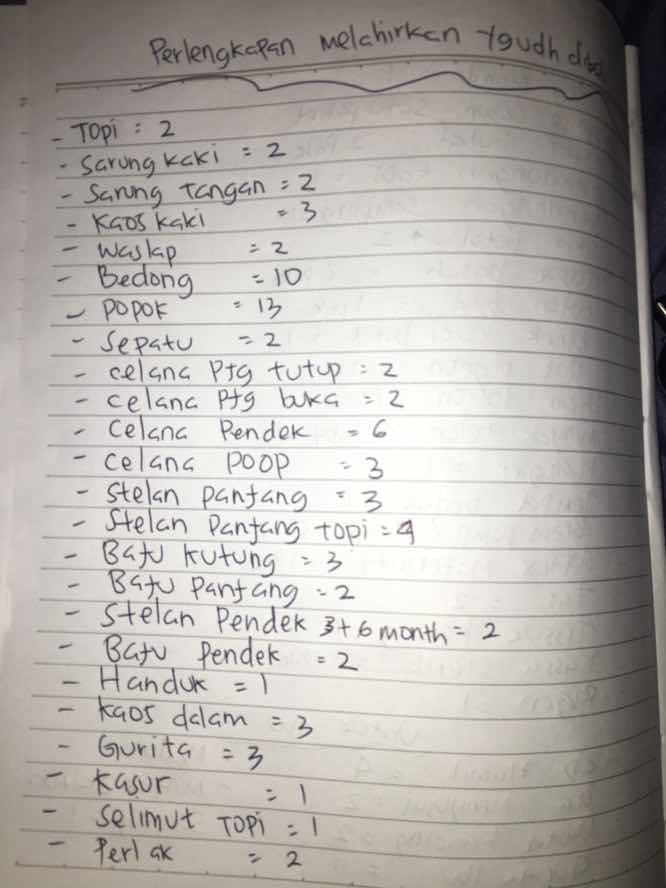 Perlengkapan melahirkan yg udh
- Topi : 2
- Sarung kaki = 2
- Sarung Tangan = 2
- Kaos kaki = 3
- Waslap = 2
- Bedong = 10
- POPOK = 13
- Sepatu = 2
- celana Ptg tutup = 2
- celana Ptg buka = 2
- celana Pendek = 6
- celana POOP = 3
- Stelan panjang = 3
- Stelan Panjang topi =
- Baju kutung = 3
- Baju Panjang = 2
- Stelan Pendek 3+6 month = 2
- Baju Pendek = 2
- Handuk = 1
- Kaos dalam = 3
- Gurita = 3
- Kasur = 1
- Selimut TOPi = 1
- Perlak = 2